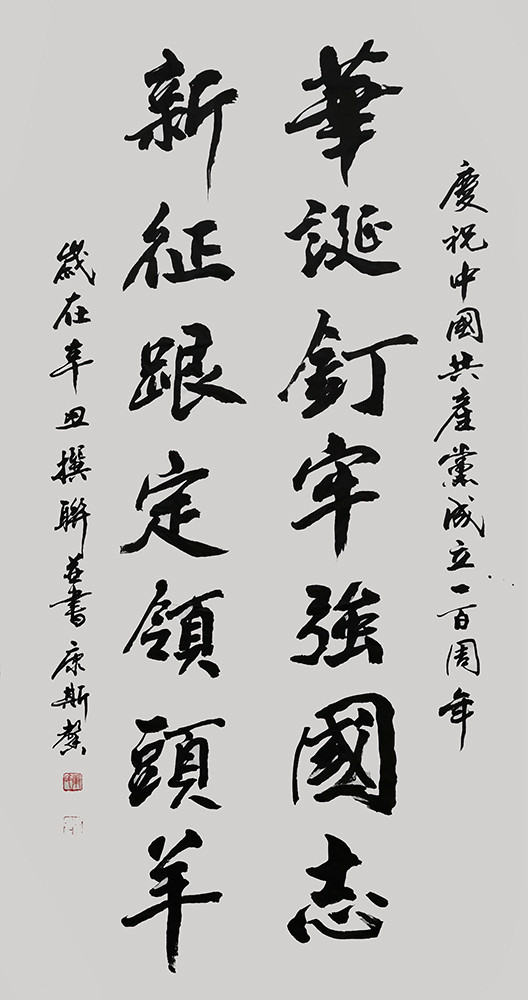 慶祝中國共產黨成立一百周年
華誕釘牢強國志
新征跟定領頭羊
歲在辛丑撰聯並書康斯馨